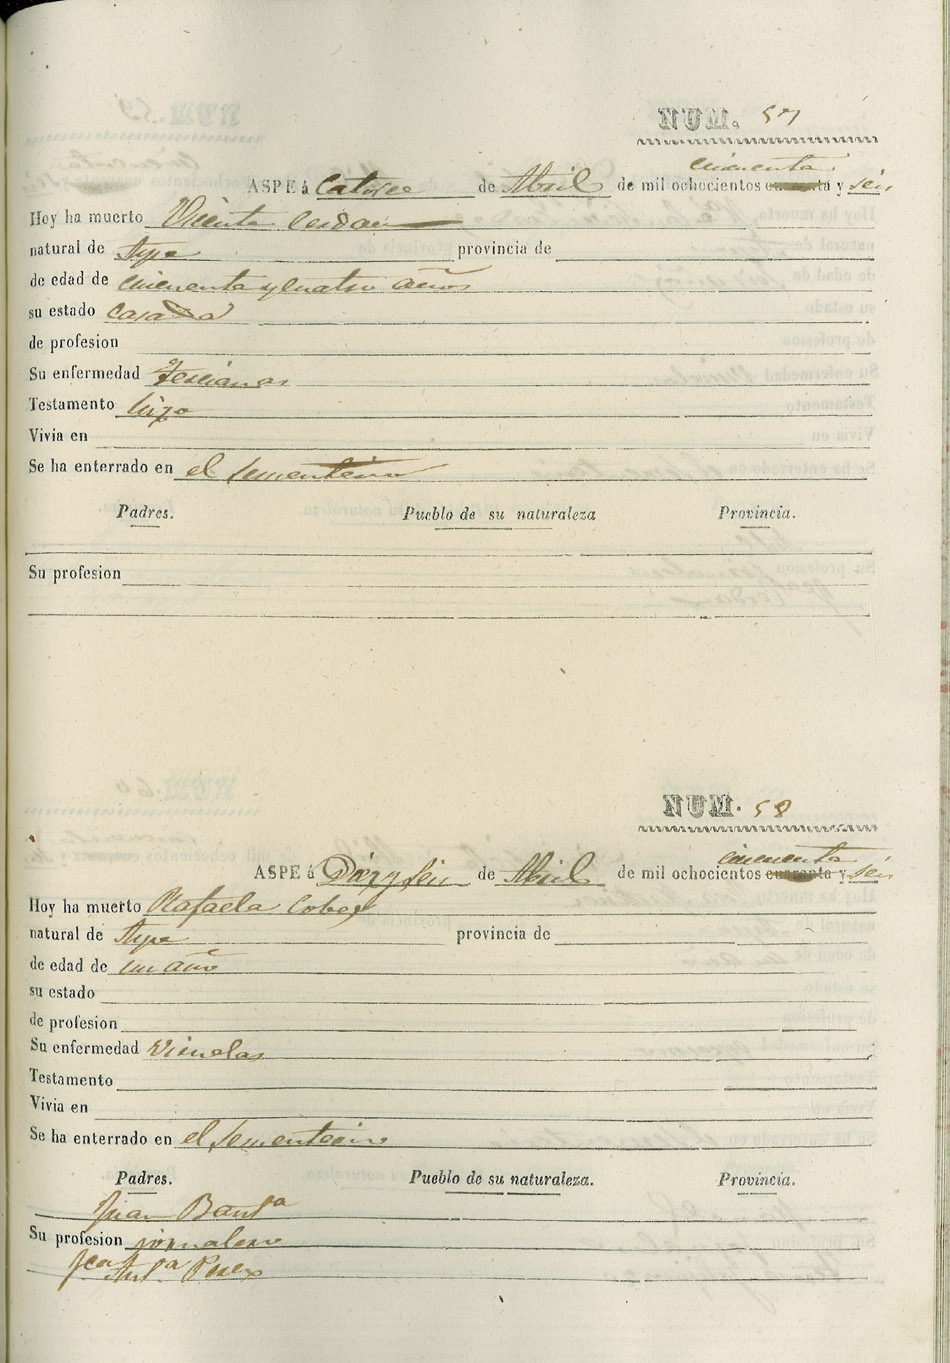 NUM. 57
cincuenta
ASPE á Catorce de Abril de mil ochocientos cuarenta y seis
Hoy ha muerto Vicenta Cerdan
natural de Aspe provincia de
de edad de cincuenta y cuatro años
su estado Casada
de profesion
Su enfermedad Tercianas
Testamento hizo
Vivia en
Se ha enterrado en el Sementerio
Padres. Pueblo de su naturaleza Provincia.
Su profesion
NUM. 58
cincuenta
ASPE á Diez y seis de Abril de mil ochocientos cuarenta y seis
Hoy ha muerto Rafaela
natural de Aspe provincia de
de edad de un año
su estado
de profesion
Su enfermedad Viruelas
Testamento
Vivia en
Se ha enterrado en el Sementerio
Padres. Pueblo de su naturaleza. Provincia.
Juan Bauta
Su profesion jornalero
Perez